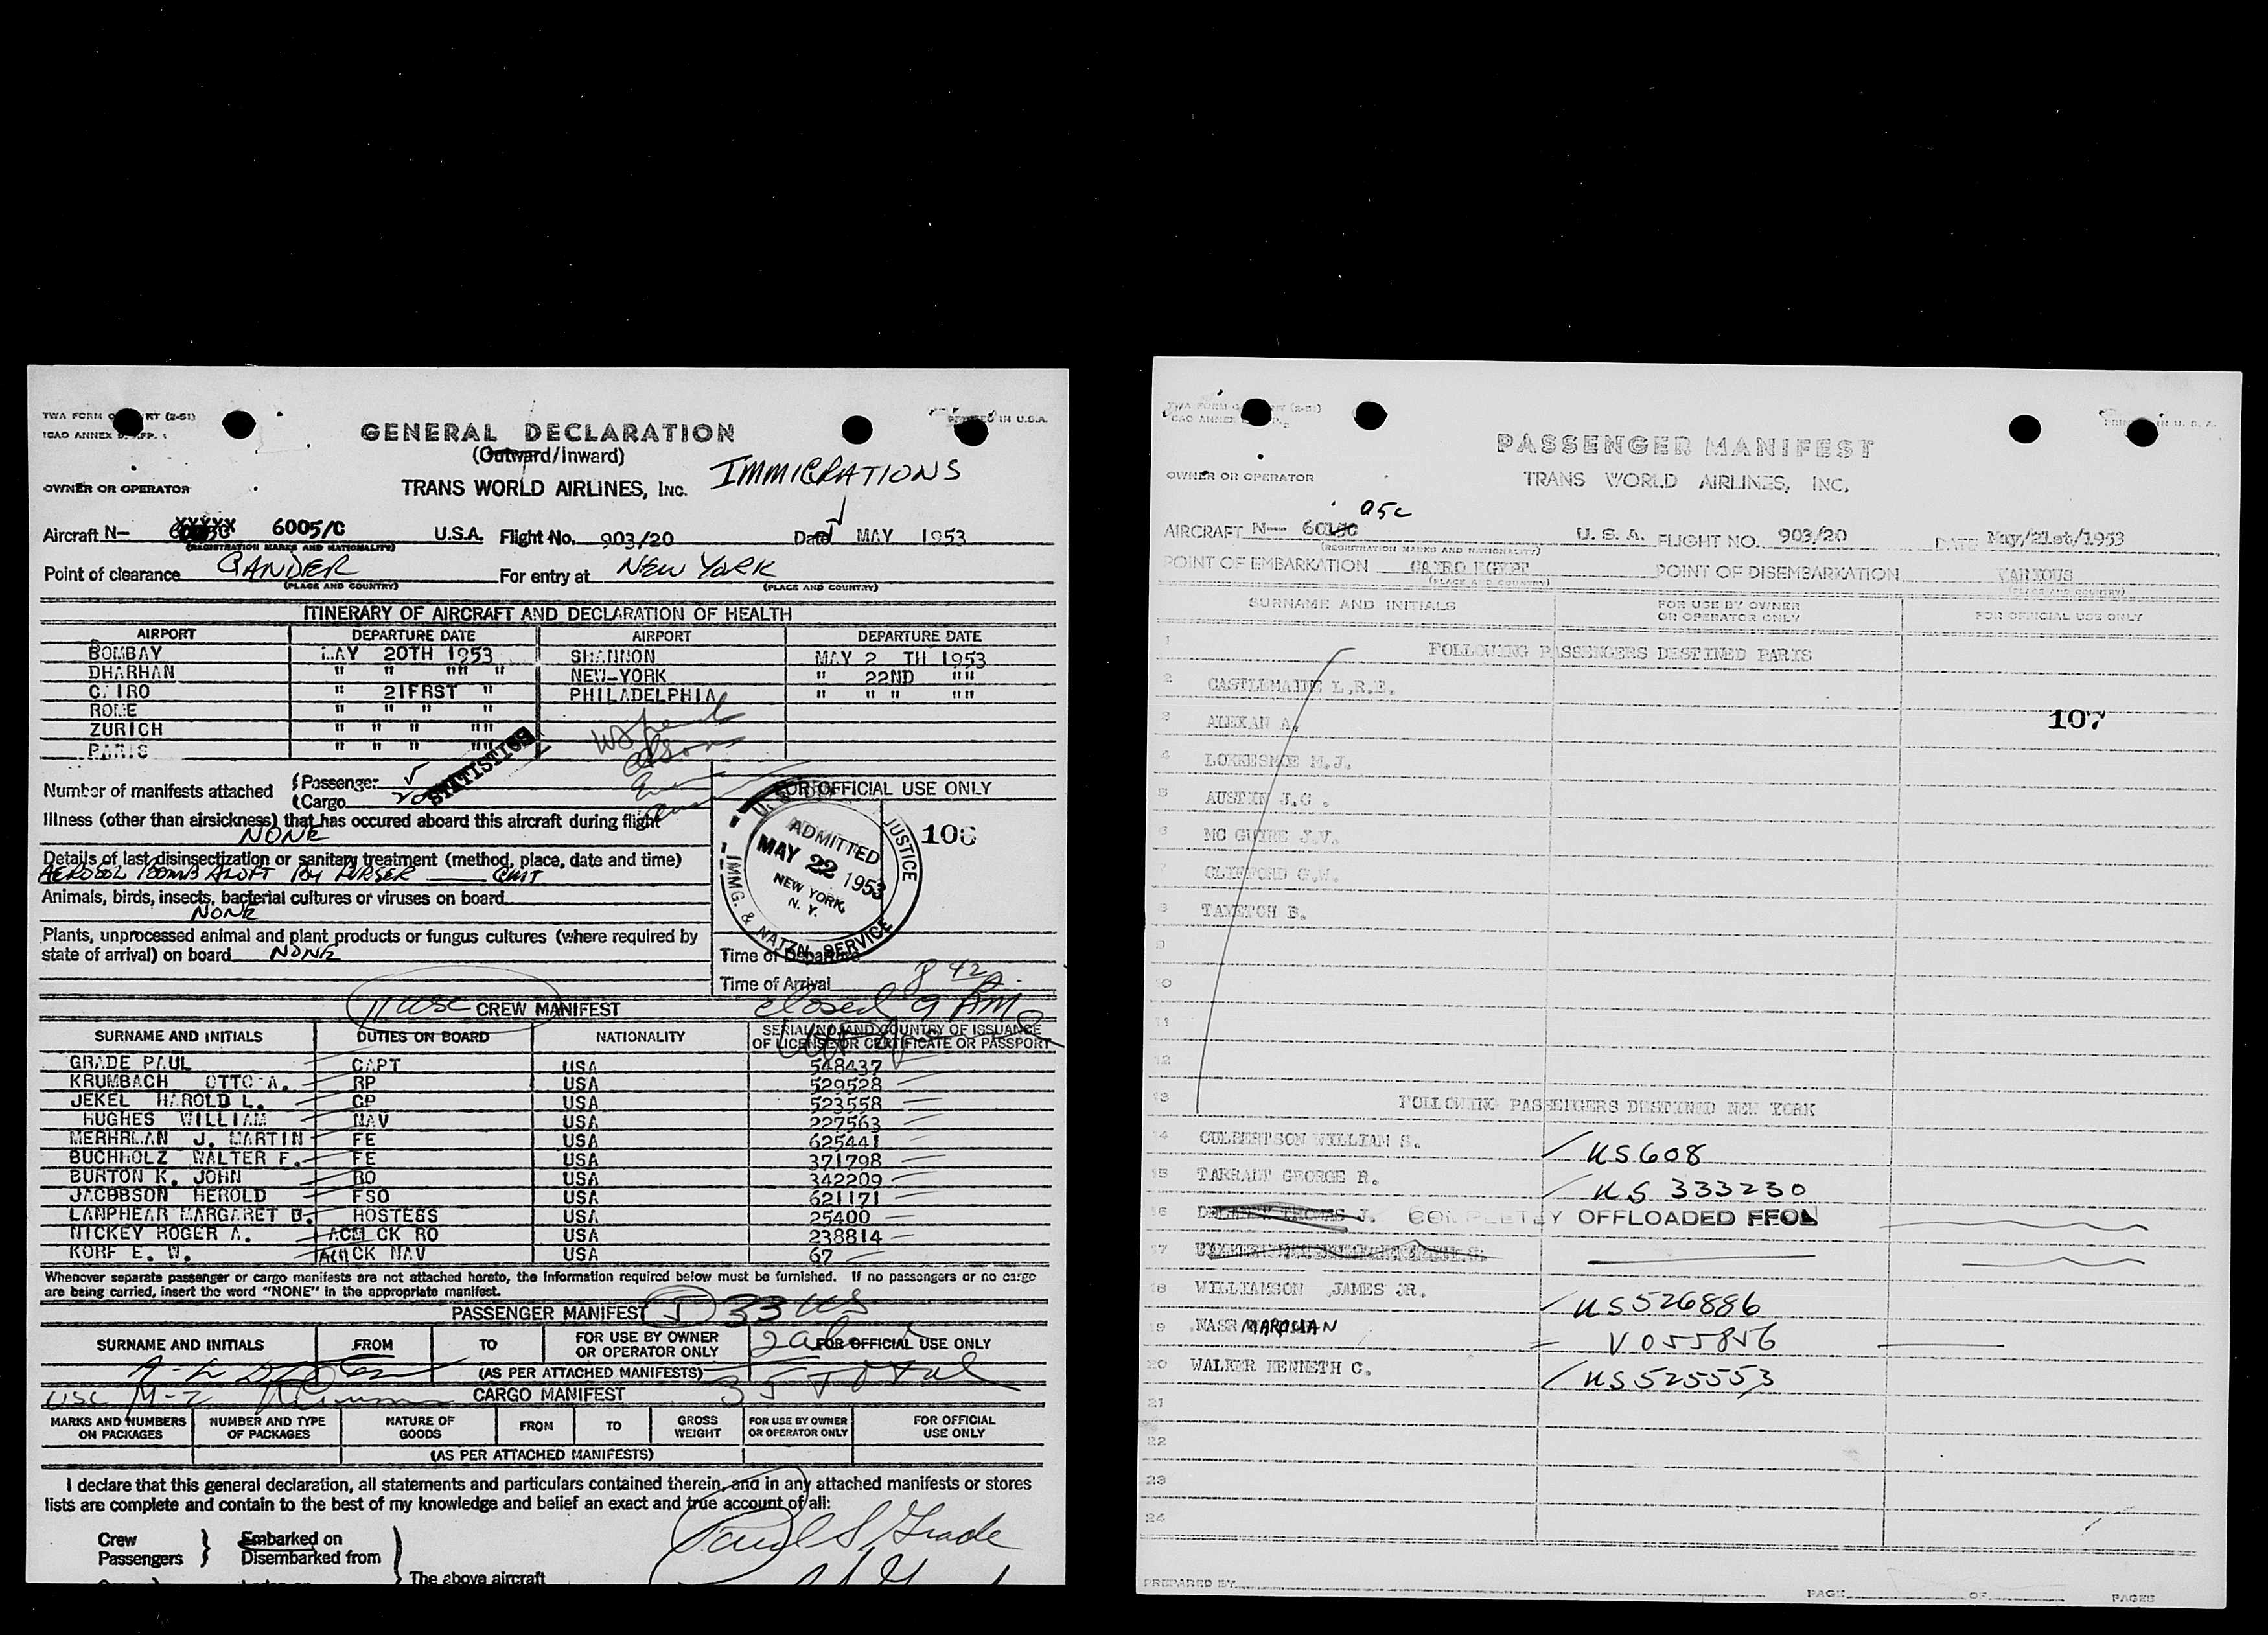 TWA FORM
ICAO ANNEX
PRINTED IN U.S.A.
GENERAL DECLARATION
(Outward/Inward)
IMMIGRATIONS
OWNER OR OPERATOR
TRANS WORLD AIRLINES, INC.
Aircraft N- XXXXX 6005/C U.S.A. Flight No. 903/20 Date MAY 1953
(REGISTRATION MARKS AND NATIONALITY)
Point of clearance GANDER For entry at NEW YORK
(PLACE AND COUNTRY) (PLACE AND COUNTRY)
ITINERARY OF AIRCRAFT AND DECLARATION OF HEALTH
AIRPORT DEPARTURE DATE AIRPORT DEPARTURE DATE
BOMBAY MAY 20TH 1953 SHANNON MAY 2 TH 1953
DHARHAN " " "" " NEW-YORK " 22ND " "
CAIRO " 21FRST " PHILADELPHIA " " " " "
ROME " " " "
ZURICH " " " " "
PARIS " " " " "
STATISTICS
Number of manifests attached (Passenger
(Cargo
FOR OFFICIAL USE ONLY
Illness (other than airsickness) that has occured aboard this aircraft during flight
NONE
106
Details of last disinsectization or sanitary treatment (method, place, date and time)
AEROSOL BOMB ALOFT BY PURSER GMT
Animals, birds, insects, bacterial cultures or viruses on board
NONE
Plants, unprocessed animal and plant products or fungus cultures (where required by
state of arrival) on board NONE
U. S. DEPT JUSTICE
ADMITTED
MAY 22 1953
NEW YORK,
N. Y.
IMMG. & NATZN. SERVICE
Time of Departure
Time of Arrival 8 42A
closed 9 AM
11 USC CREW MANIFEST
SURNAME AND INITIALS DUTIES ON BOARD NATIONALITY SERIAL NO. AND COUNTRY OF ISSUANCE
OF LICENSE OR CERTIFICATE OR PASSPORT
GRADE PAUL CAPT USA 548437
KRUMBACH OTTO A. RP USA 529528
JEKEL HAROLD L. CP USA 523558
HUGHES WILLIAM NAV USA 227563
MERHRMAN J. MARTIN FE USA 625441
BUCHHOLZ WALTER F. FE USA 371798
BURTON K. JOHN RO USA 342209
JACOBSON HEROLD FSO USA 621171
LANPHEAR MARGARET B. HOSTESS USA 25400
NICKEY ROGER A. ACM CK RO USA 238814
KORF E. W. ACM CK NAV USA 67
Whenever separate passenger or cargo manifests are not attached hereto, the information required below must be furnished. If no passengers or no cargo
are being carried, insert the word "NONE" in the appropriate manifest.
PASSENGER MANIFEST 5 33 US
SURNAME AND INITIALS FROM TO FOR USE BY OWNER
OR OPERATOR ONLY FOR OFFICIAL USE ONLY
(AS PER ATTACHED MANIFESTS) 35 Total
USC M-Z CARGO MANIFEST
MARKS AND NUMBERS
ON PACKAGES NUMBER AND TYPE
OF PACKAGES NATURE OF
GOODS FROM TO GROSS
WEIGHT FOR USE BY OWNER
OR OPERATOR ONLY FOR OFFICIAL
USE ONLY
(AS PER ATTACHED MANIFESTS)
I declare that this general declaration, all statements and particulars contained therein, and in any attached manifests or stores
lists are complete and contain to the best of my knowledge and belief an exact and true account of all:
Paul S. Grade
Crew
Passengers
Embarked on
Disembarked from
The above aircraft
PASSENGER MANIFEST
OWNER OR OPERATOR
TRANS WORLD AIRLINES, INC.
05C
AIRCRAFT N- U. S. A. FLIGHT NO. 903/20 DATE May/21st/1953
(REGISTRATION MARKS AND NATIONALITY)
POINT OF EMBARKATION CAIRO EGYPT POINT OF DISEMBARKATION VARIOUS
(PLACE AND COUNTRY) (PLACE AND COUNTRY)
SURNAME AND INITIALS FOR USE BY OWNER
OR OPERATOR ONLY FOR OFFICIAL USE ONLY
1 FOLLOWING PASSENGERS DESTINED PARIS
2 CASTLEMAINE L.R.E.
3 ALEXAN A. 107
4 M.J.
5 AUSTIN J.G .
6 MC GUIRE J.V.
7 CLIFFORD G.W.
8 B.
9
10
11
12
13 FOLLOWING PASSENGERS DESTINED NEW YORK
14 CULBERTSON WILLIAM S. US 608
15 TARRANT GEORGE R. US 333230
16 THOMAS J. COMPLETELY OFFLOADED FFOL
17
18 WILLIAMSON JAMES JR. US 526886
19 NASR MAROUAN V 055856
20 WALKER KENNETH C. US 525553
21
22
23
24
PREPARED BY PAGE OF PAGES